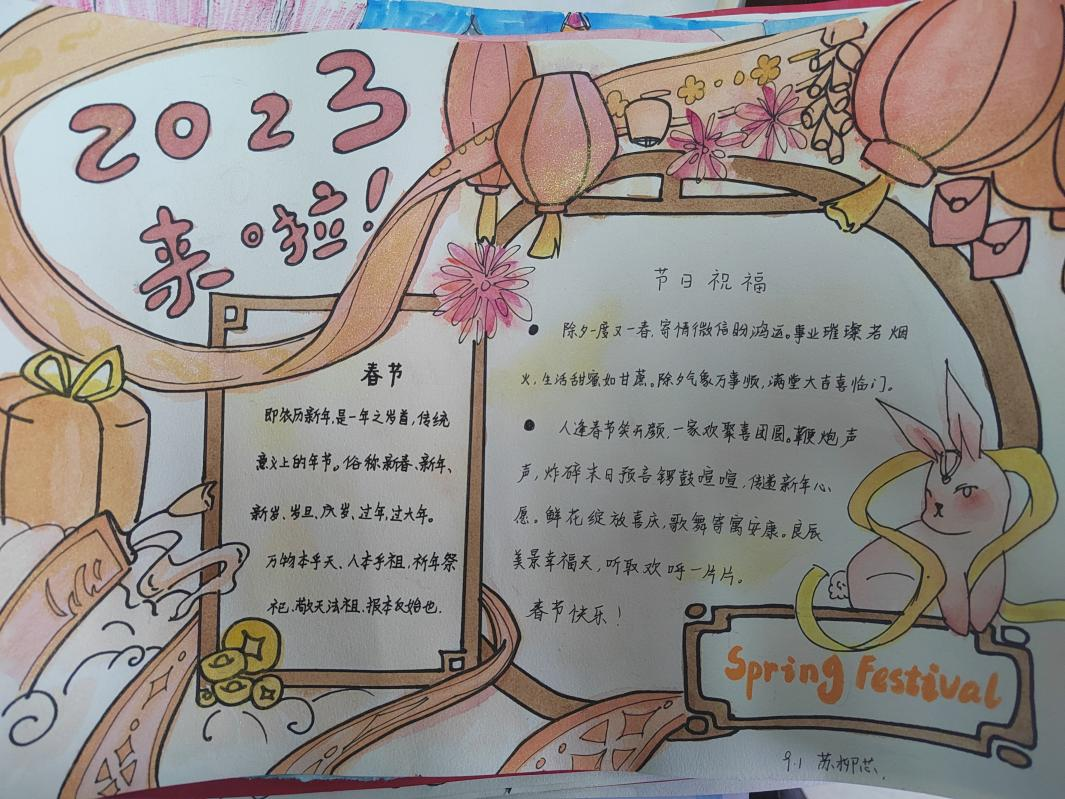 2023
来啦!
春节
即农历新年,是一年之岁首,传统
意义上的年节。俗称新春、新年、
新岁、岁旦、庆岁、过年、过大年。
万物本乎天、人本乎祖,祈年祭
祀、敬天法祖、报本反始也.
节日祝福
• 除夕一度又一春,寄情微信盼鸿运。事业璀璨若烟
火,生活甜蜜如甘蔗。除夕气象万事顺,满堂大吉喜临门。
• 人逢春节笑开颜,一家欢聚喜团圆。鞭炮声
声,炸碎末日预言锣鼓喧喧,传递新年心
愿。鲜花绽放喜庆,歌舞寄寓安康。良辰
美景幸福天,听取欢呼一片片。
春节快乐!
Spring Festival
9.1 苏柳芯.